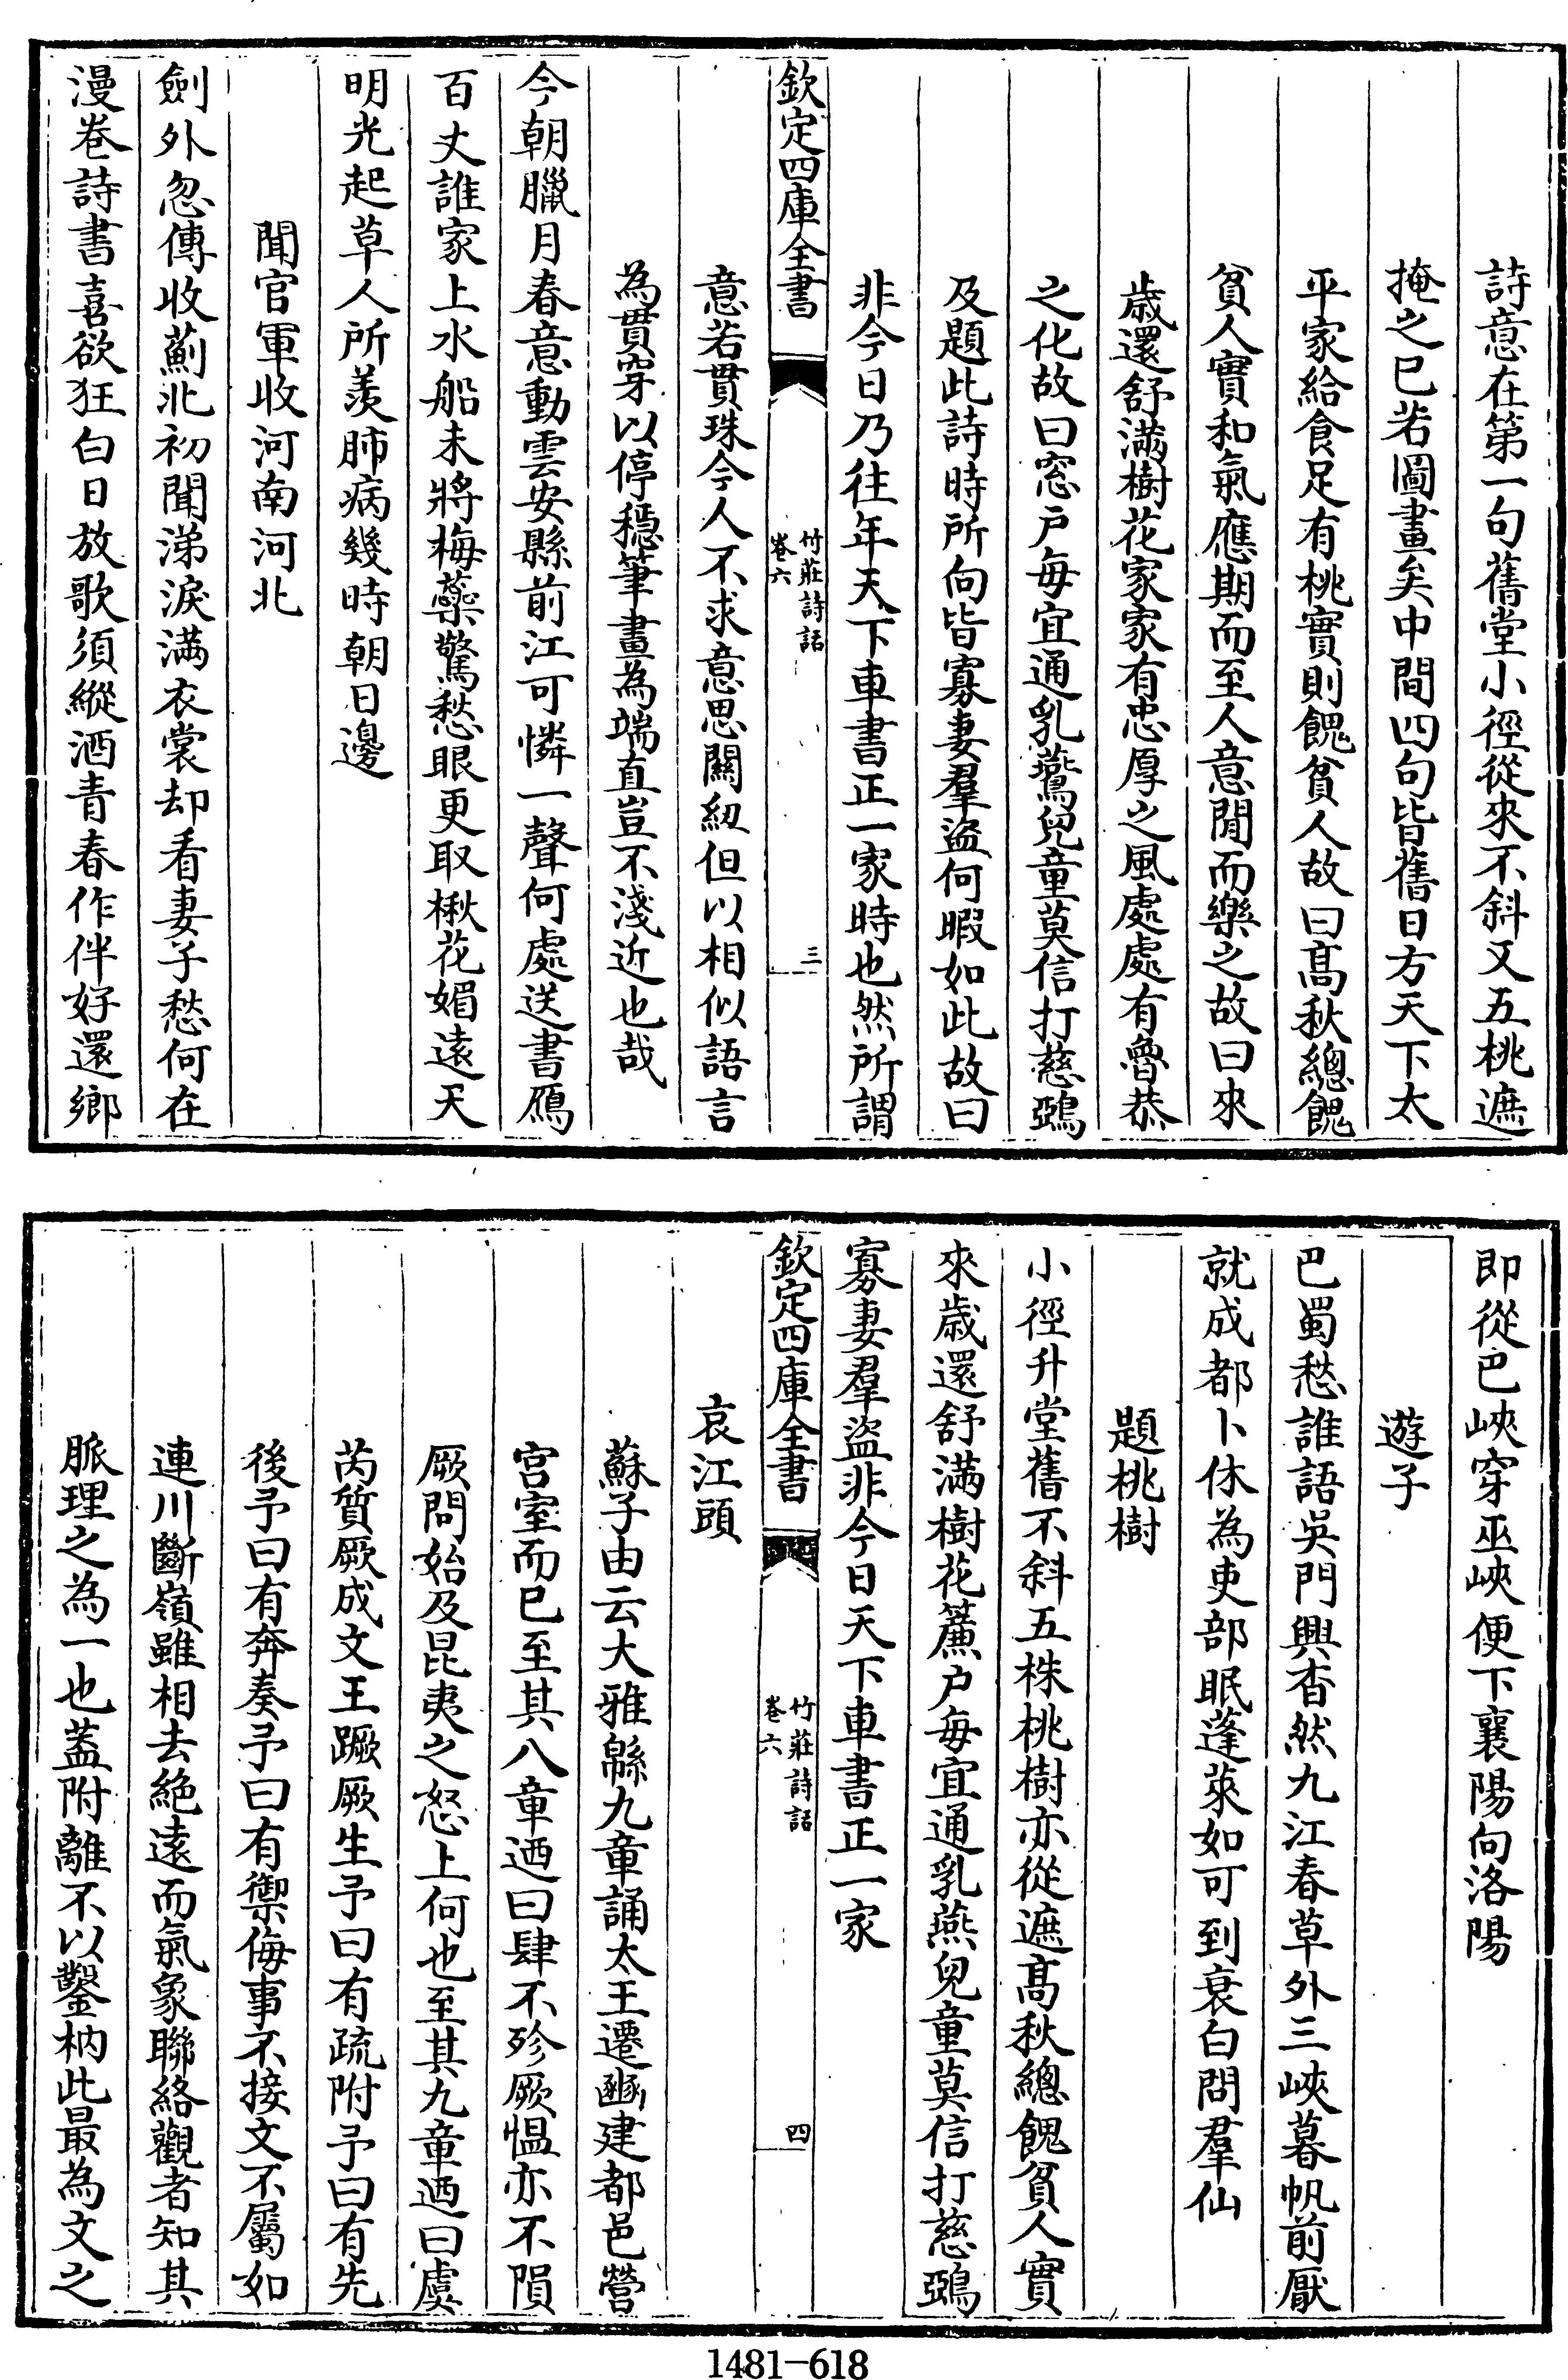 詩意在第一句舊堂小徑從來不斜又五桃遮
掩之已若圖畫矣中間四句皆舊日方天下太
平家給食足有桃實則餽貧人故曰髙秋總餽
貧人實和氣應期而至人意閒而樂之故曰來
歳還舒滿樹花家家有忠厚之風處處有魯恭
之化故曰窓戶每宜通乳鷰兒童莫信打慈鵶
及題此詩時所向皆寡妻羣盜何暇如此故曰
非今日乃往年天下車書正一家時也然所謂
欽定四庫全書
竹莊詩話
卷六
三
意若貫珠今人不求意思關紐但以相似語言
為貫穿以停穏筆畫為端直豈不淺近也哉
今朝臘月春意動雲安縣前江可憐一聲何處送書鴈
百丈誰家上水船未將梅蘂驚愁眼更取楸花媚逺天
明光起草人所羨肺病幾時朝日邊
聞官軍收河南河北
劍外忽傳收薊北初聞涕淚滿衣裳却看妻子愁何在
漫巻詩書喜欲狂白日放歌須縱酒青春作伴好還鄉
即從巴峽穿巫峽便下襄陽向洛陽
遊子
巴蜀愁誰語吳門興杳然九江春草外三峽暮帆前厭
就成都卜休為吏部眠蓬萊如可到衰白問羣仙
題桃樹
小徑升堂舊不斜五株桃樹亦從遮髙秋總餽貧人實
來歳還舒滿樹花簾户每宜通乳燕兒童莫信打慈鵶
寡妻羣盜非今日天下車書正一家
欽定四庫全書
竹莊詩話
卷六
四
哀江頭
蘇子由云大雅緜九章誦太王遷豳建都邑營
宫室而已至其八章迺曰肆不殄厥愠亦不隕
厥問始及昆夷之怒上何也至其九章迺曰虞
芮質厥成文王蹶厥生予曰有疏附予曰有先
後予曰有奔奏予曰有禦侮事不接文不屬如
連川斷嶺雖相去絶逺而氣象聯絡觀者知其
脈理之為一也蓋附離不以鑿枘此最為文之
1481-618